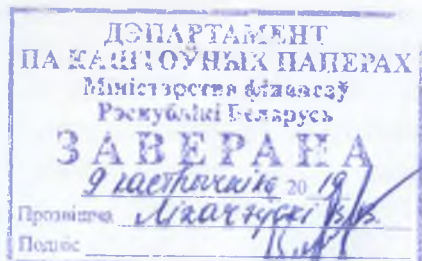 ДЭПАРТАМЕНТ
ПА КАШТОЎНЫХ ПАПЕРАХ
Міністэрства фінансаў
Рэспублікі Беларусь
ЗАВЕРАНА
9 кастрычніка 2019
Прозвішча
Подпіс